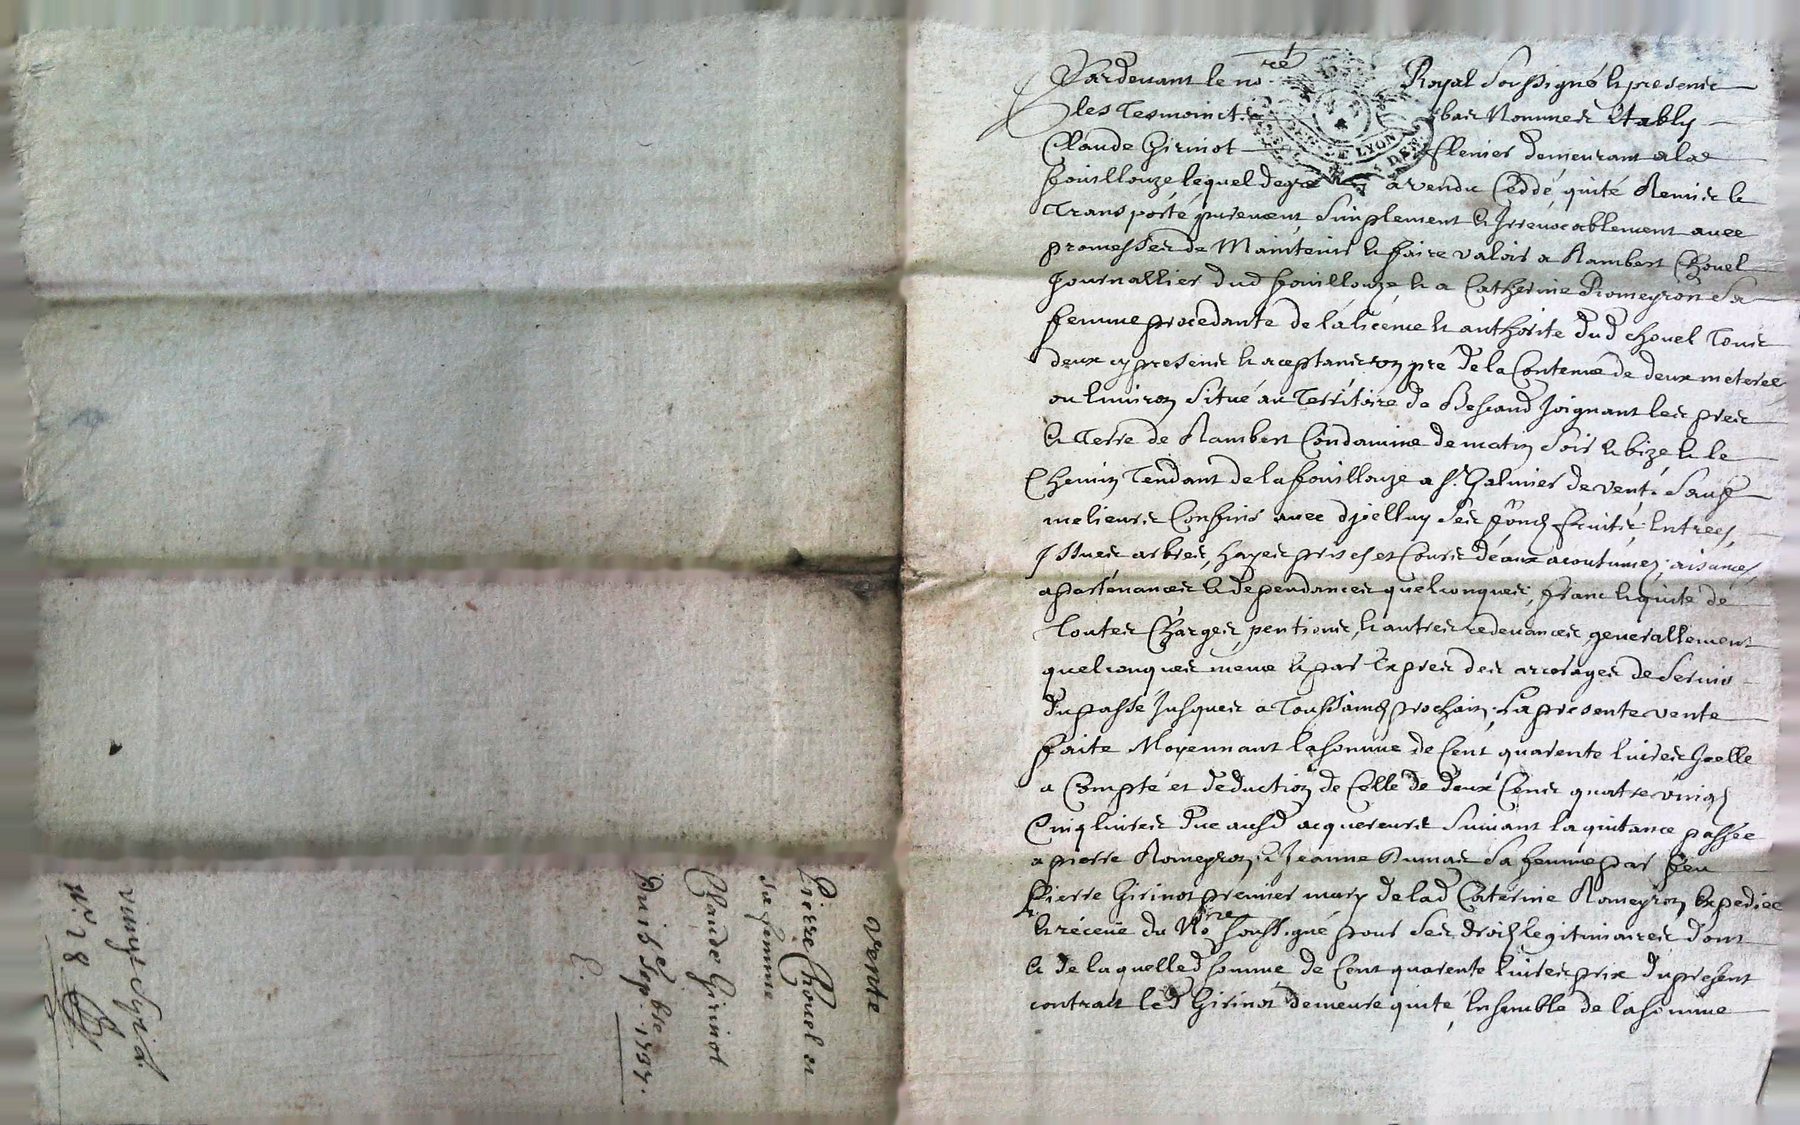 Pardevant le no.re Royal soussigné & presents
les tesmoincts bas nommes Estably
Claude Girinot demeurant a la
fouillouze lequel de gre a vendu ceddé, quité Remis &
Transporté purement simplement & Irrevocablement avec
promesses de Maintenir & faire valoir a Rambert Chovel
Journallier dud fouillouze & a Catherine Romeyron sa
femme procedante de la licence & authorite dud chovel tous
deux cy presents & aceptants un pré de la Contenue de deux meterees
ou Environ situé au Territoire de Joignant les pres
& Terre de Rambert Condamine de matin soir & bize & le
Chemin Tendant de la fouillouze a st. Galmier de vent, sauf
melieurs Confins avec Iceluy ses fonds fruits, Entrees,
Issues arbres, hayes prises et Cours deaux acoutumes, aisances,
apartenances & dependances quelconques, franc & quite de
toutes Charges, pentions, & autres redevances generallement
quelconques meme & par Expres des arrerages de servis
du passé Jusques a Toussainds prochain, La presente vente
faite Moyennant la somme de Cent quarente livres Icelle
a Compte et deduction de Celle de deux Cents quatre vingds
Cinq livres due ausd acquereurs suivant la quitance passée
a pierre Romeyron & Jeanne Dumas sa femme par feu
Pierre Girinot premier mary de lad Caterine Romeyron Expediée
& receue du No.re soussigné pour ses droits legitimaires dont
& de laquelled somme de Cent quarente livres prix du present
contrat led Girinot demeure quite, Ensemble de la somme
vente
Pierre Chovel en
sa femme
Claude Girinot
Du
vingt
n° 28